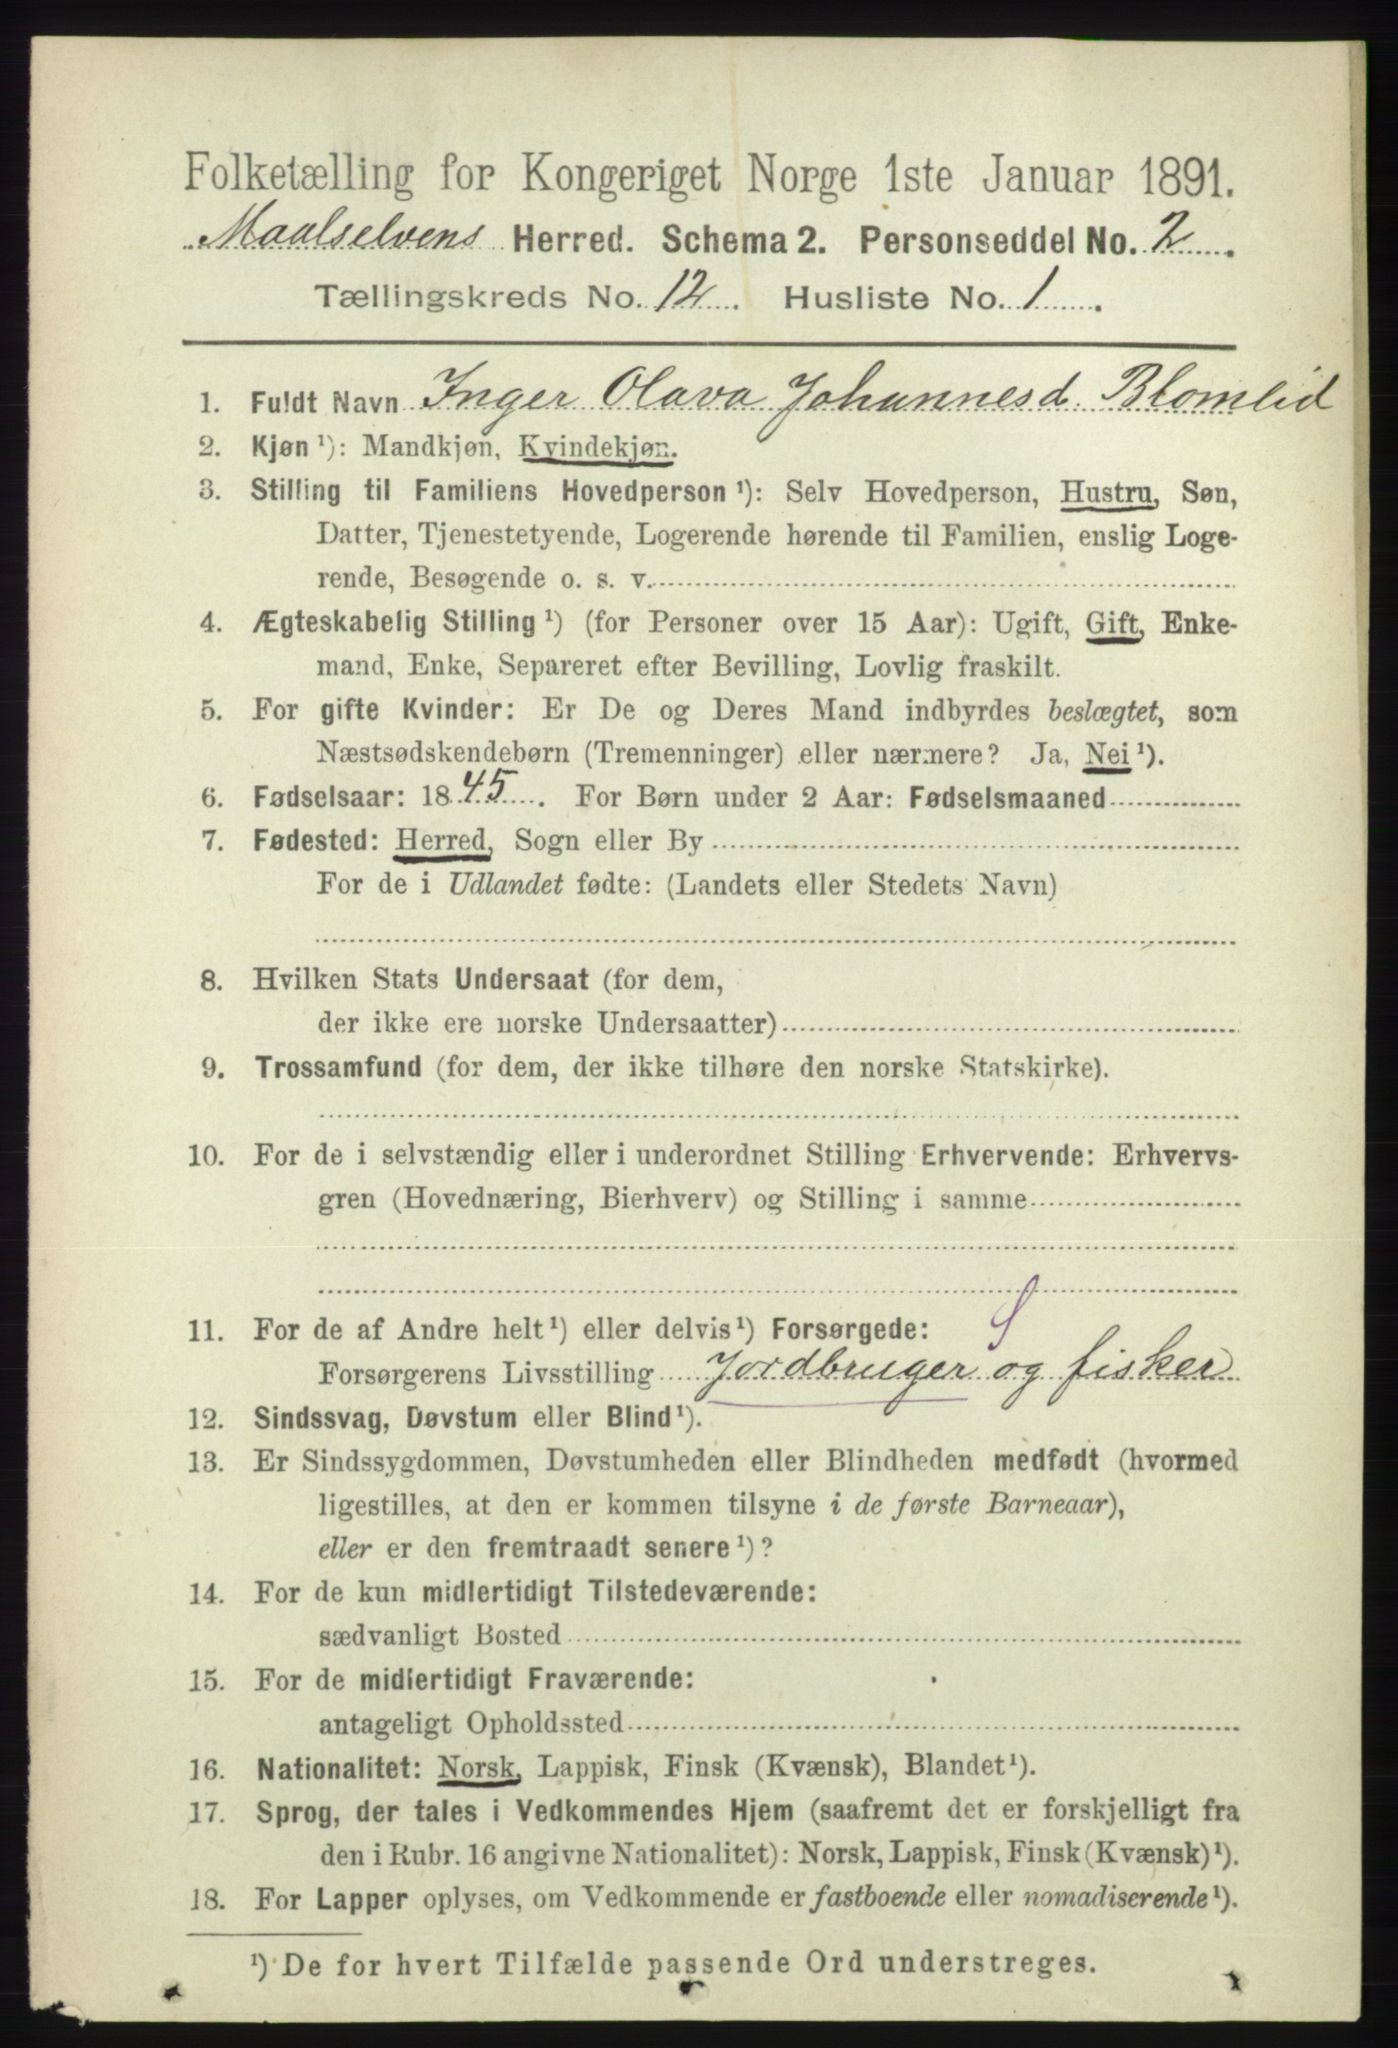 Folketælling for Kongeriget Norge 1ste Januar 1891.
Maalselvens Herred. Schema 2. Personseddel No. 2.
Tællingskreds No. 12. Husliste No. 1.
1. Fuldt Navn Inger Olava Johannesd. Blomlid
2. Kjøn ¹): Mandkjøn, Kvindekjøn.
3. Stilling til Familiens Hovedperson ¹): Selv Hovedperson, Hustru, Søn,
Datter, Tjenestetyende, Logerende hørende til Familien, enslig Loge-
rende, Besøgende o. s. v.
4. Ægteskabelig Stilling ¹) (for Personer over 15 Aar): Ugift, Gift, Enke-
mand, Enke, Separeret efter Bevilling, Lovlig fraskilt.
5. For gifte Kvinder: Er De og Deres Mand indbyrdes beslægtet, som
Næstsødskendebørn (Tremenninger) eller nærmere? Ja, Nei ¹).
6. Fødselsaar: 1845. For Børn under 2 Aar: Fødselsmaaned
7. Fødested: Herred, Sogn eller By
For de i Udlandet fødte: (Landets eller Stedets Navn)
8. Hvilken Stats Undersaat (for dem,
der ikke ere norske Undersaatter)
9. Trossamfund (for dem, der ikke tilhøre den norske Statskirke).
10. For de i selvstændig eller i underordnet Stilling Erhvervende: Erhvervs-
gren (Hovednæring, Bierhverv) og Stilling i samme
11. For de af Andre helt ¹) eller delvis ¹) Forsørgede: S
Forsørgerens Livsstilling Jordbruger og fisker
12. Sindssvag, Døvstum eller Blind ¹).
13. Er Sindssygdommen, Døvstumheden eller Blindheden medfødt (hvormed
ligestilles, at den er kommen tilsyne i de første Barneaar),
eller er den fremtraadt senere ¹)?
14. For de kun midlertidigt Tilstedeværende:
sædvanligt Bosted
15. For de midlertidigt Fraværende:
antageligt Opholdssted
16. Nationalitet: Norsk, Lappisk, Finsk (Kvænsk), Blandet ¹).
17. Sprog, der tales i Vedkommendes Hjem (saafremt det er forskjelligt fra
den i Rubr. 16 angivne Nationalitet): Norsk, Lappisk, Finsk (Kvænsk) ¹).
18. For Lapper oplyses, om Vedkommende er fastboende eller nomadiserende ¹).
¹) De for hvert Tilfælde passende Ord understreges.